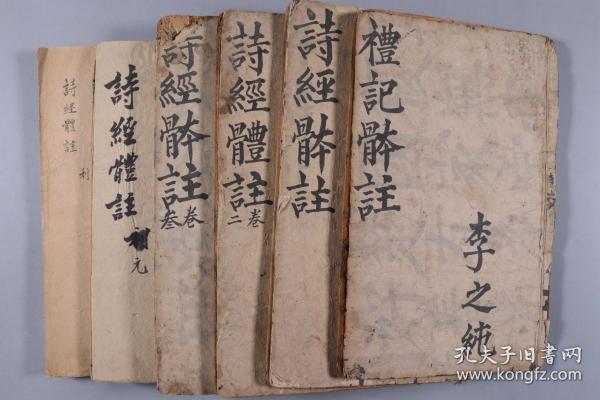 禮記骵註
李之純
詩經骵註
詩經體註
卷二
詩經骵註
卷叁
詩經體註
元
詩經體註
利
孔夫子旧书网
www.kongfz.com